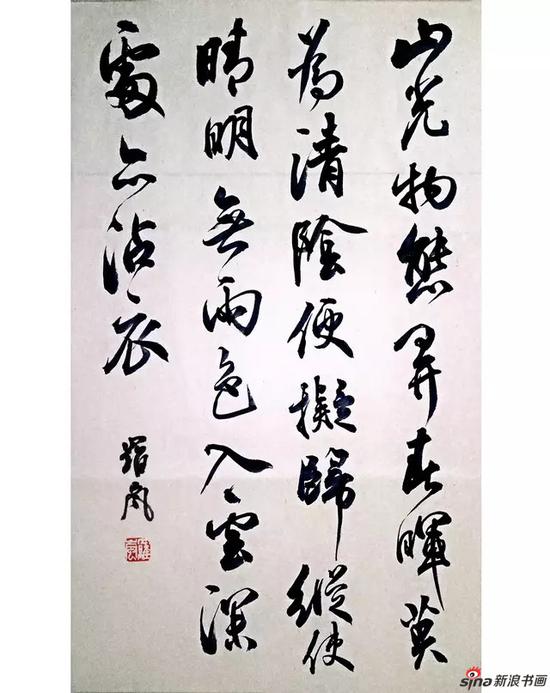 山光物態弄春暉莫
為清陰便擬歸縱使
晴明無雨色入雲深
處亦沾衣
sina新浪书画